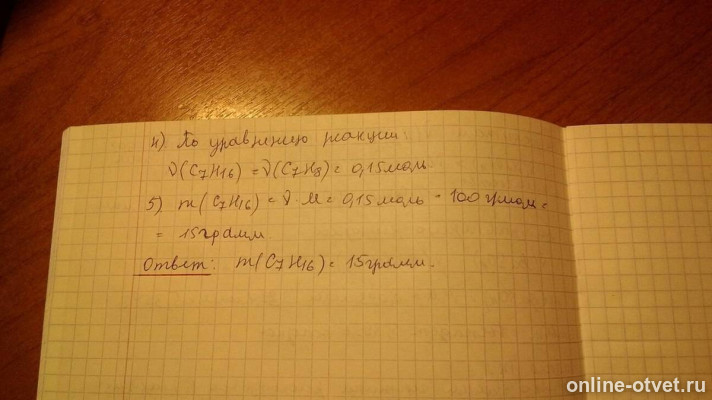 4) По уравнению реакции:
ν(C₇H₁₆) = ν(C₇H₈) = 0,15 моль.
5) m(C₇H₁₆) = ν · M = 0,15 моль · 100 г/моль =
= 15 грамм.
Ответ: m(C₇H₁₆) = 15 грамм.
online-otvet.ru